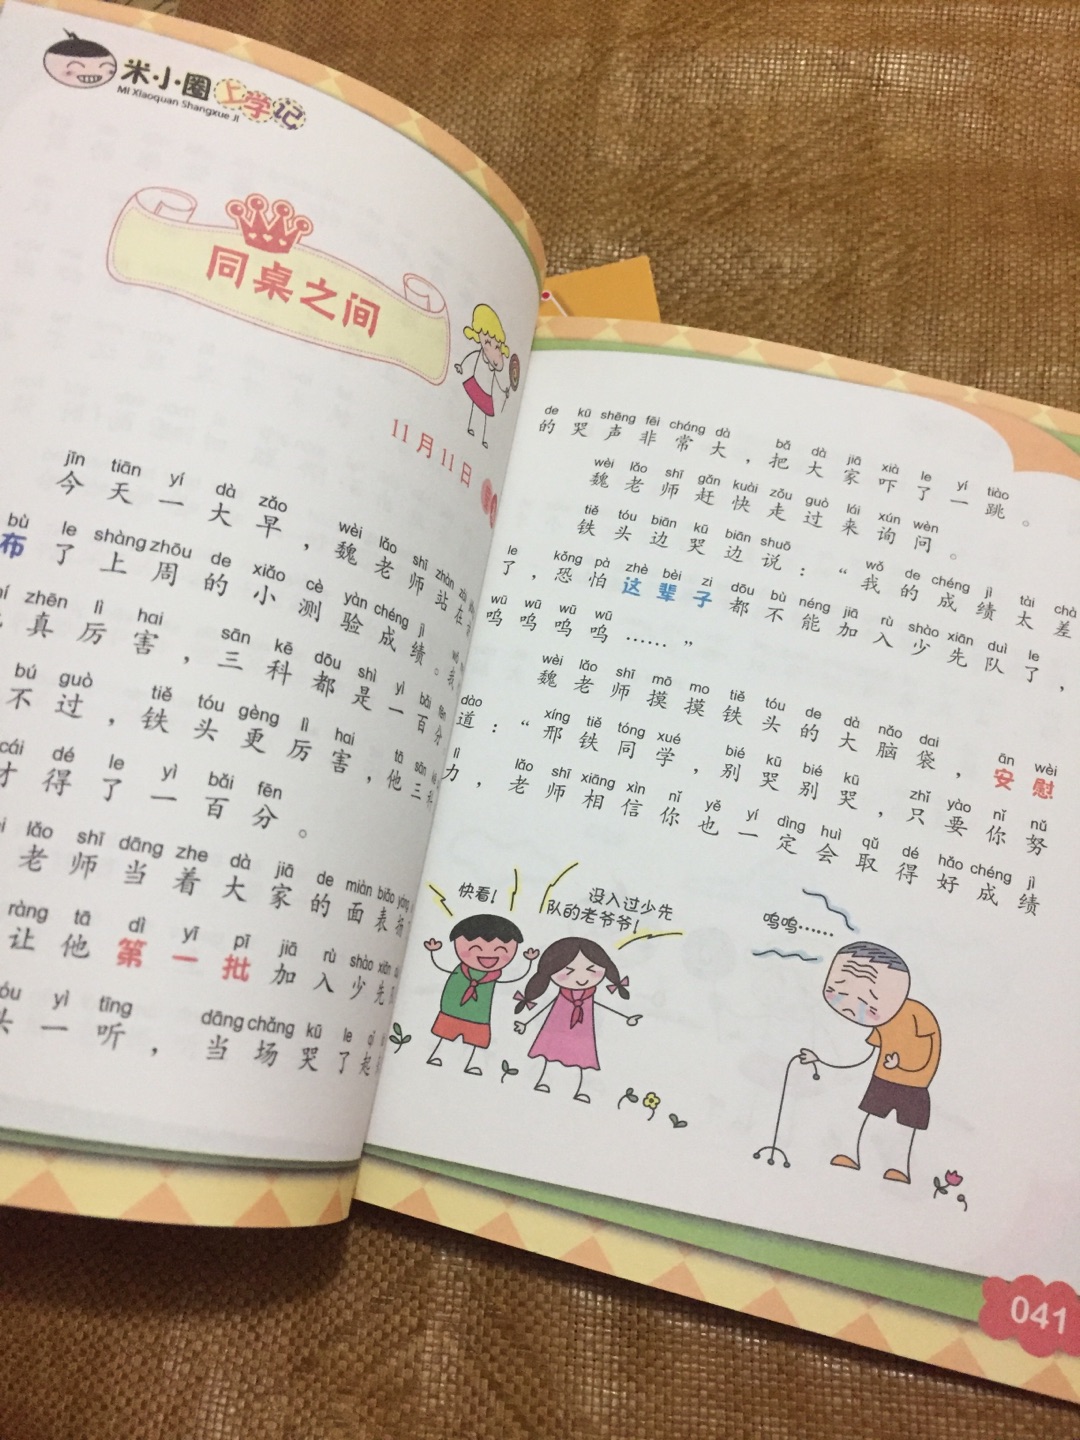 米·小·圈上学记
Mi Xiaoquan Shangxue Ji
同桌之间
11月11日
jīn tiān yí dà zǎo wèi lǎo shī zhàn zài
今天一大早，魏老师站在
bù le shàng zhōu de xiǎo cè yàn chéng jì
布了上周的小测验成绩。我
zhēn lì hai sān kē dōu shì yì bǎi fēn
真厉害，三科都是一百分
bú guò tiě tóu gèng lì hai tā sān
不过，铁头更厉害，他三科
cái dé le yì bǎi fēn
才得了一百分。
lǎo shī dāng zhe dà jiā de miàn biǎo yáng
老师当着大家的面表扬
ràng tā dì yī pī jiā rù shào xiān
让他第一批加入少先
yì tīng dāng chǎng kū le qǐ
头一听，当场哭了起
de kū shēng fēi cháng dà bǎ dà jiā xià le yí tiào
的哭声非常大，把大家吓了一跳。
wèi lǎo shī gǎn kuài zǒu guò lái xún wèn
魏老师赶快走过来询问。
tiě tóu biān kū biān shuō wǒ de chéng jì tài chà
铁头边哭边说：“我的成绩太差
le kǒng pà zhè bèi zi dōu bù néng jiā rù shào xiān duì le
了，恐怕这辈子都不能加入少先队了，
wū wū wū wū
呜呜呜呜……”
wèi lǎo shī mō mo tiě tóu de dà nǎo dai ān wèi
魏老师摸摸铁头的大脑袋，安慰
dào xíng tiě tóng xué bié kū bié kū zhǐ yào nǐ nǔ
道：“邢铁同学，别哭别哭，只要你努
lì lǎo shī xiāng xìn nǐ yě yí dìng huì qǔ dé hǎo chéng jì
力，老师相信你也一定会取得好成绩
快看！
没入过少先
队的老爷爷！
呜呜……
041